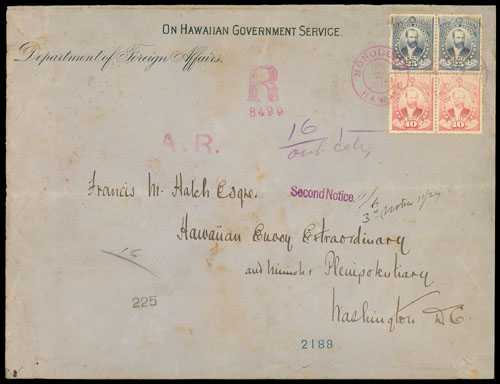 ON HAWAIIAN GOVERNMENT SERVICE.
Department of Foreign Affairs.
HONOLU
HAWAII
25 25
10 10
R
8499
A. R.
16
out
Francis M. Hatch Esqre.
Second Notice.
11/6
3d Notice 11/24
Hawaiian Envoy Extraordinary
and Minister Plenipotentiary
Washington D.C.
16
225
2188